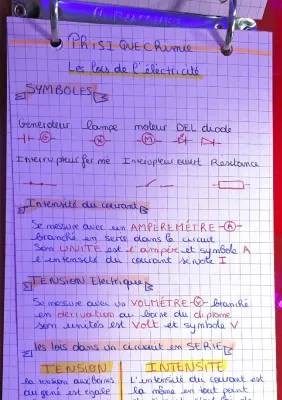 PHISIQUE Chimie
Les lois de l'électricité
SYMBOLES
Générateur lampe moteur DEL diode
G M
Interrupteur fermé Interrupteur ouvert Résistance
Intensité du courant
Se mesure avec un AMPEREMÉTRE A
branché en serie dans le circuit
Son UNITE est l'ampère et symbole A
l'intensité du courant se note I
TENSION Electrique
Se mesure avec un VOLMÉTRE V branché
en dérivation au borne du diplome
son unités est Volt et symbole V
les lois dans un circuit en SERIE
TENSION INTENSITE
la tension aux bornes L'intensité du courant est
du géné est égale la même en tout point